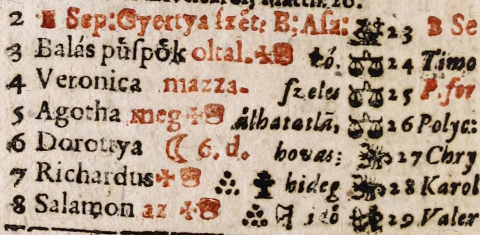 2 B Sep: Gyertya ſzét: B; Aſa: 23 B Se
3 Balás pu̎ſpo̎k oltal. tó. 24 Timo
4 Veronica mazza. ſzeles 25 P. for
5 Agotha meg álhatatlã, 26 Polyc:
6 Dorottya 6. d. hovas; 27 Chry
7 Richardus hideg 28 Karol
8 Salamon az ido̎ 29 Valer